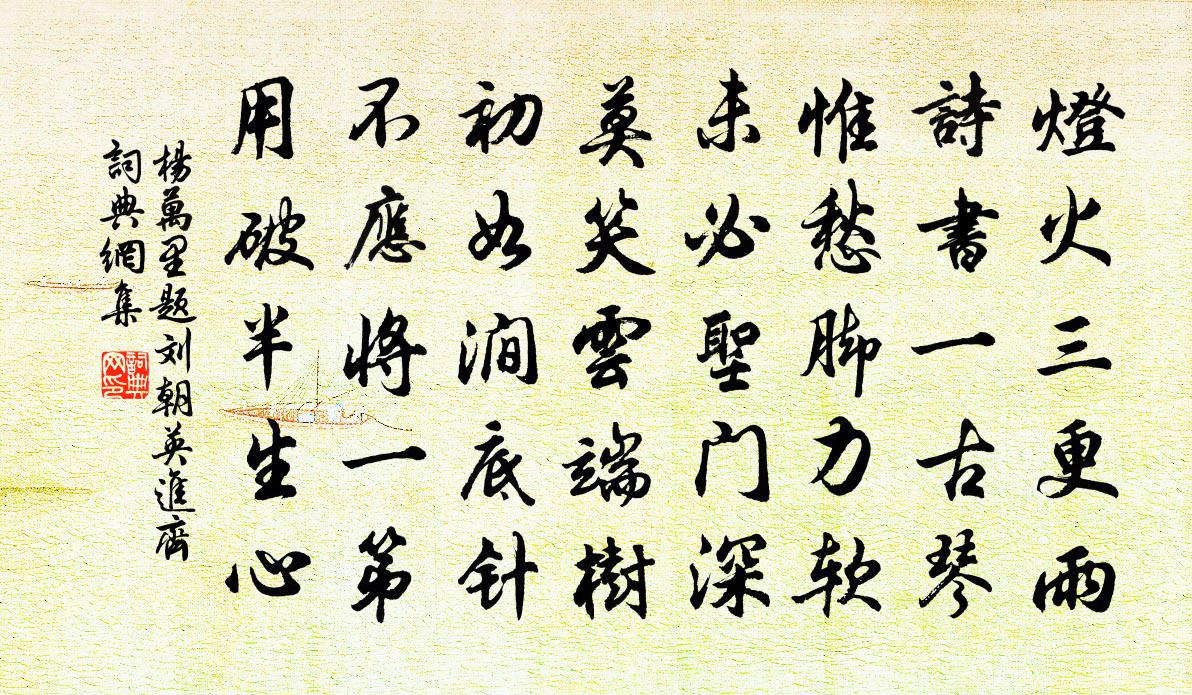 燈火三更雨
詩書一古琴
惟愁脚力軟
未必聖門深
莫笑雲端樹
初如澗底针
不應將一第
用破半生心
楊萬里题刘朝英進齊
詞典網集
詞典
网印